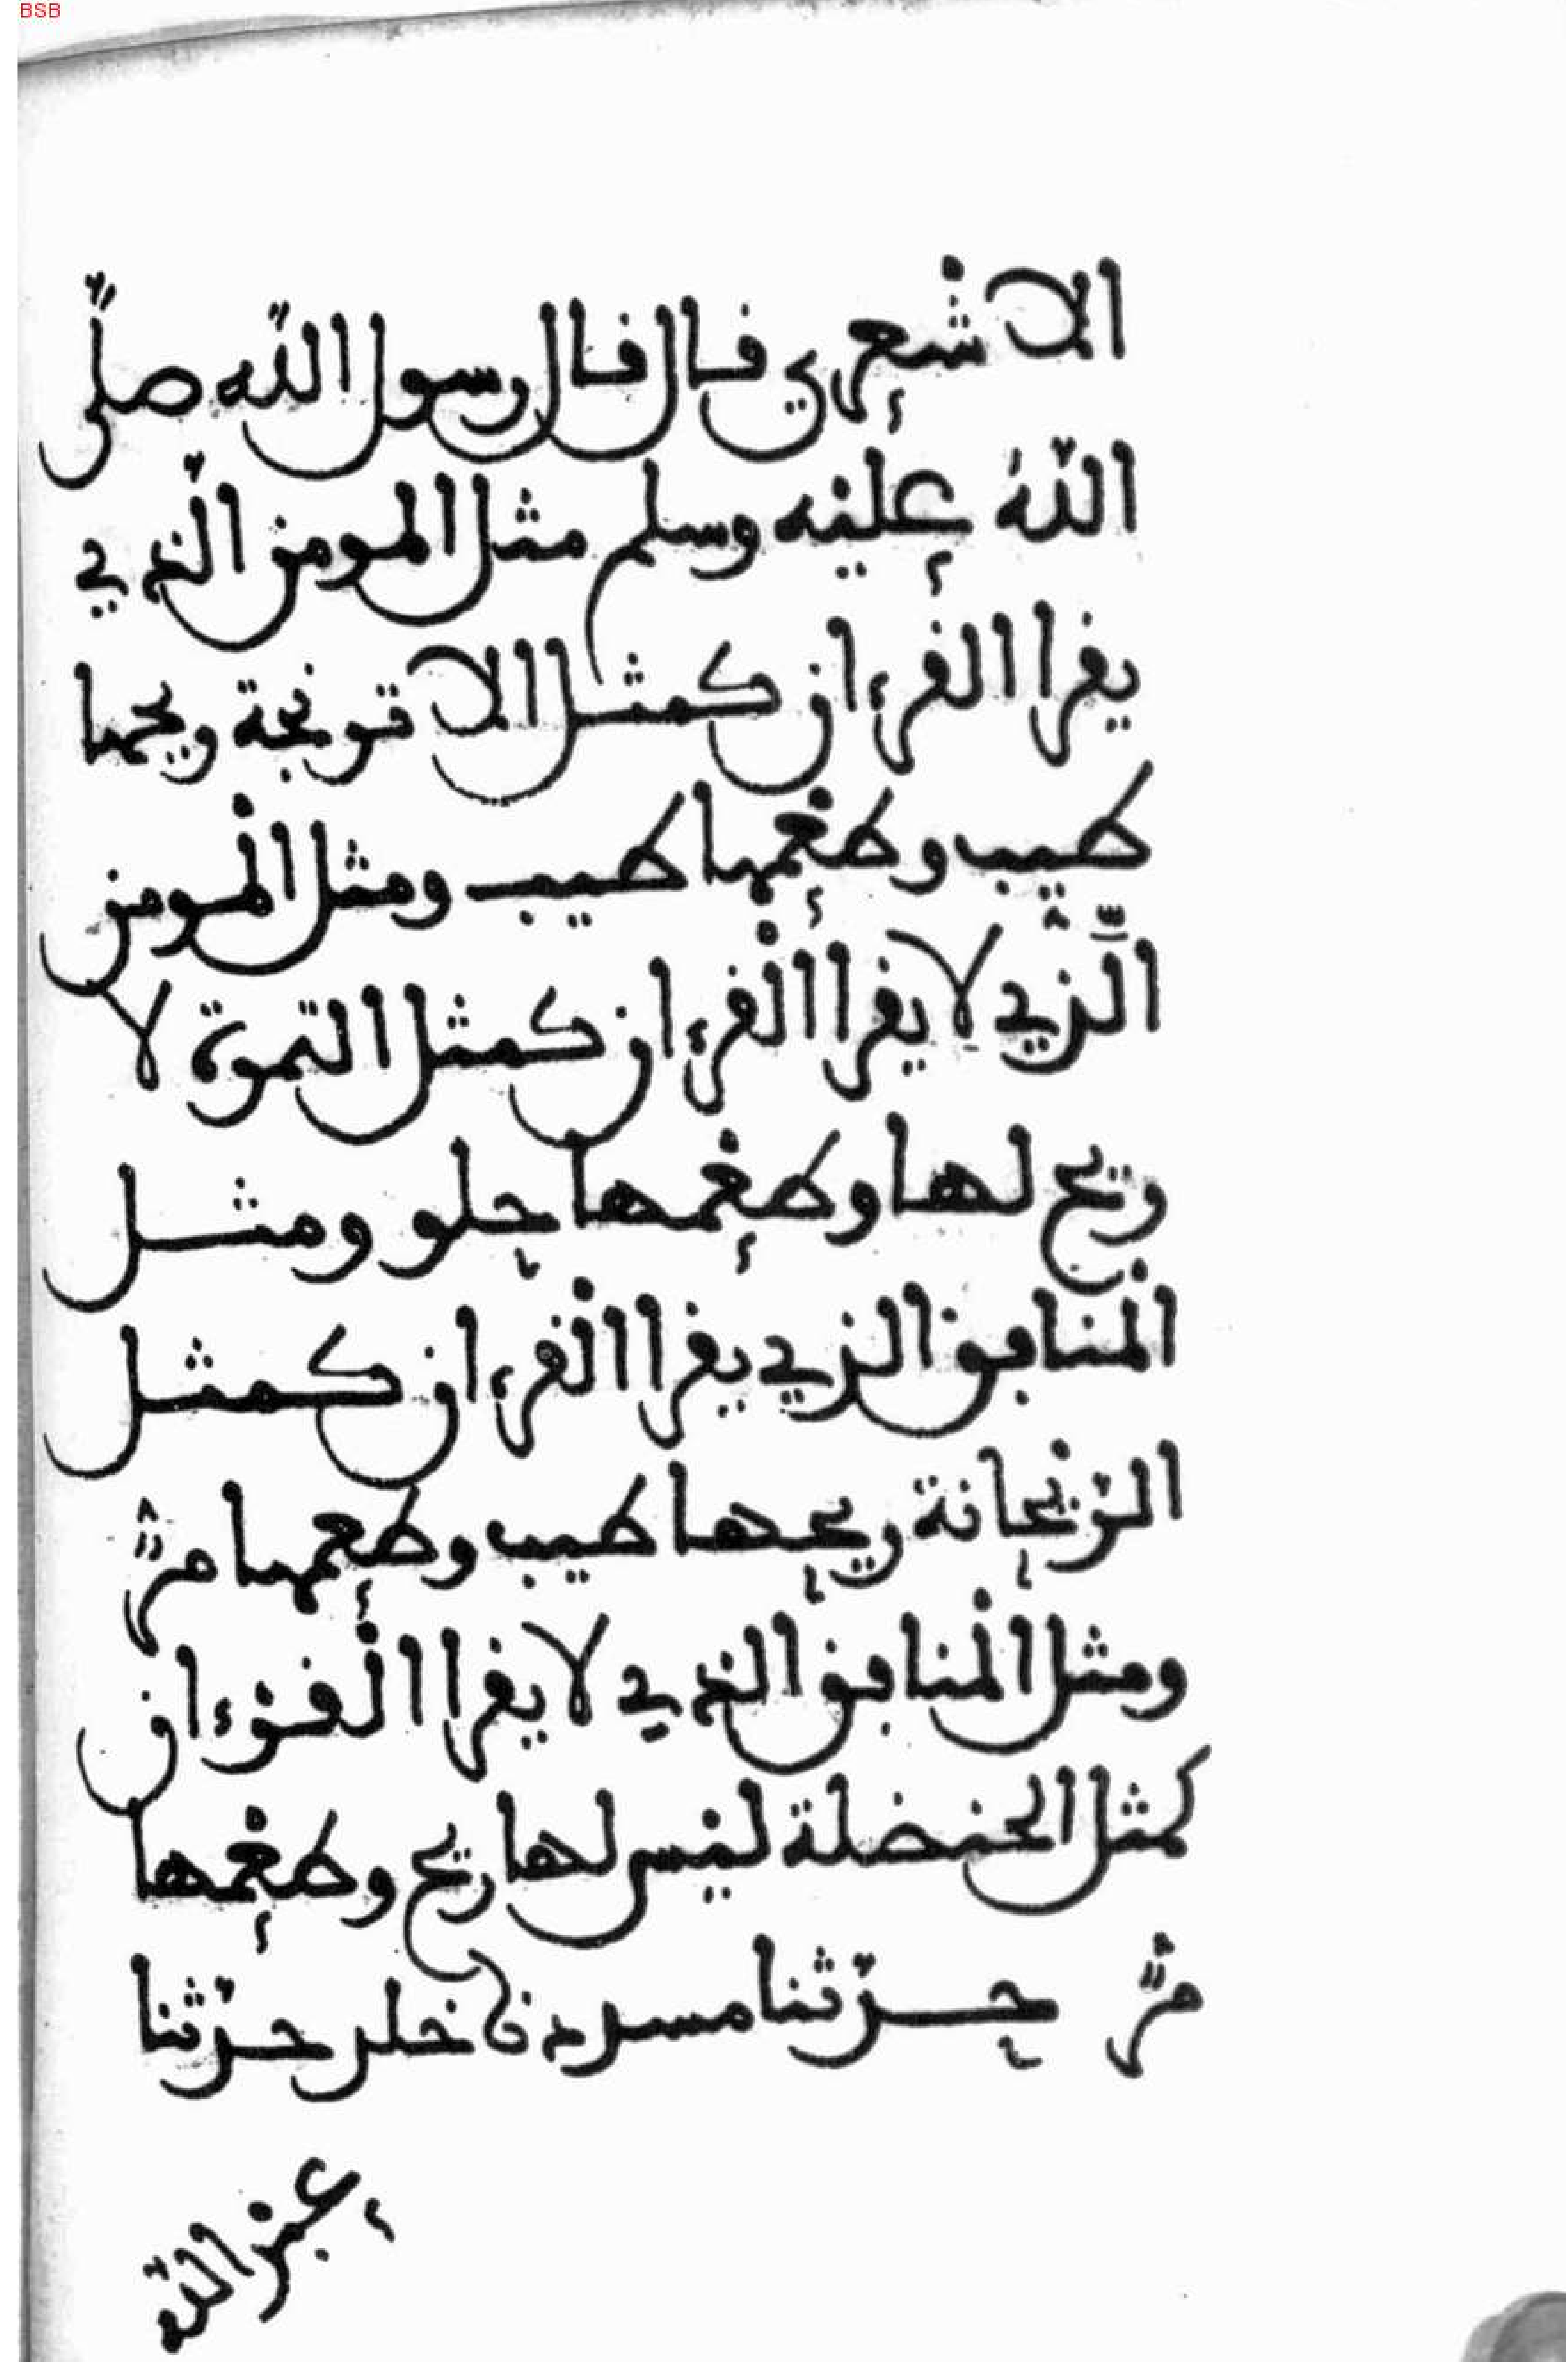 BSB
الاشعري قال قال رسول اللّه صلّى
اللّهُ عليْه وسلم مثل المومن الّذي
يقرا القرءان كمثل الاترنجة ريحها
طيب وطعْمها طيب ومثل الْمومن
الَّذي لا يقرا الْقرءان كمثل التّمرة لا
ريح لها وطعْمها حلو ومثل
الْمنافق الذي يقرا الْقرءان كمثل
الرّيْحانة ريحها طيب وطعمها مرٌّ
ومثل الْمنافق الذي لا يقرا الْقرْءان
كمثل الحنضلة ليْس لها ريح وطعْمها
مرٌّ حدّثنا مسدد نا خلد حدّثنا
عبد اللّه